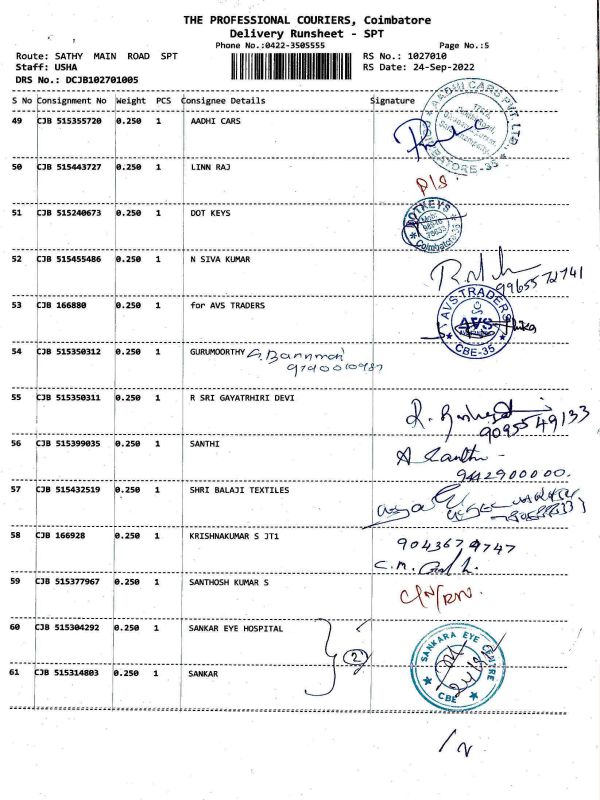 THE PROFESSIONAL COURIERS, Coimbatore
Delivery Runsheet - SPT
Phone No.:0422-3505555 Page No.:5
Route: SATHY MAIN ROAD SPT RS No.: 1027010
Staff: USHA RS Date: 24-Sep-2022
DRS No.: DCJB102701005
S No Consignment No Weight PCS Consignee Details Signature
49 CJB 515355720 0.250 1 AADHI CARS
AADHI CARS PVT. LTD.
COIMBATORE-35
50 CJB 515443727 0.250 1 LINN RAJ P/S
51 CJB 515240673 0.250 1 DOT KEYS
DOTKEYS
Coimbatore-35
52 CJB 515455486 0.250 1 N SIVA KUMAR
9965572741
53 CJB 166880 0.250 1 for AVS TRADERS
AVS TRADERS
AVS
CBE-35
54 CJB 515350312 0.250 1 GURUMOORTHY
55 CJB 515350311 0.250 1 R SRI GAYATRHIRI DEVI
9095549133
56 CJB 515399035 0.250 1 SANTHI A Santhi
9442900000.
57 CJB 515432519 0.250 1 SHRI BALAJI TEXTILES
58 CJB 166928 0.250 1 KRISHNAKUMAR S JT1
9043679747
59 CJB 515377967 0.250 1 SANTHOSH KUMAR S
60 CJB 515304292 0.250 1 SANKAR EYE HOSPITAL
2
SANKARA EYE CENTRE
CBE
61 CJB 515314803 0.250 1 SANKAR